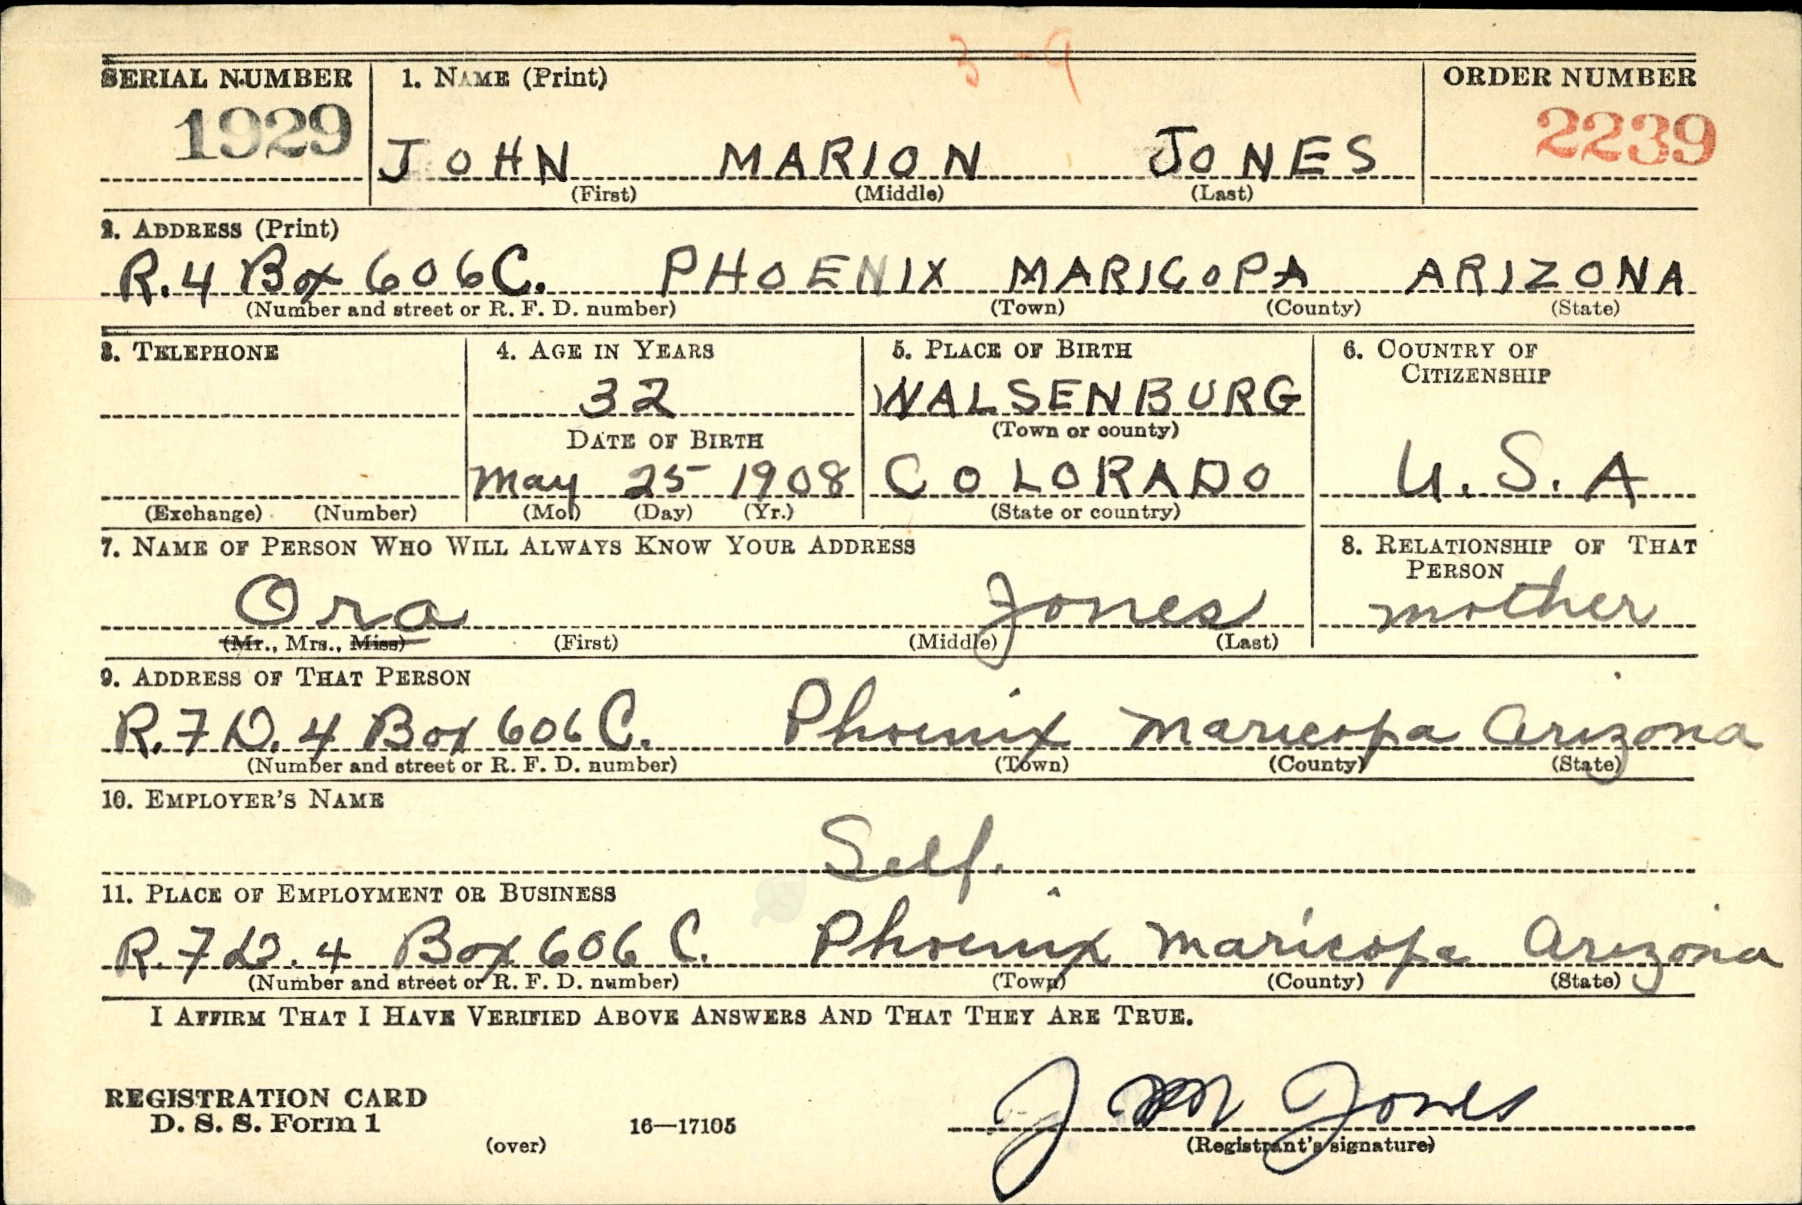 3-9
SERIAL NUMBER 1. NAME (Print) ORDER NUMBER
1929 JOHN MARION JONES 2239
(First) (Middle) (Last)
2. ADDRESS (Print)
R.4 Box 606C. PHOENIX MARICOPA ARIZONA
(Number and street or R. F. D. number) (Town) (County) (State)
3. TELEPHONE 4. AGE IN YEARS 5. PLACE OF BIRTH 6. COUNTRY OF
CITIZENSHIP
32 WALSENBURG
DATE OF BIRTH (Town or county)
May 25 1908 COLORADO U.S.A
(Exchange) (Number) (Mo.) (Day) (Yr.) (State or country)
7. NAME OF PERSON WHO WILL ALWAYS KNOW YOUR ADDRESS 8. RELATIONSHIP OF THAT
PERSON
Ora Jones mother
(Mr., Mrs., Miss) (First) (Middle) (Last)
9. ADDRESS OF THAT PERSON
R.F.D. 4 Box 606 C. Phoenix Maricopa Arizona
(Number and street or R. F. D. number) (Town) (County) (State)
10. EMPLOYER'S NAME
Self.
11. PLACE OF EMPLOYMENT OR BUSINESS
R.F.D. 4 Box 606 C. Phoenix Maricopa Arizona
(Number and street or R. F. D. number) (Town) (County) (State)
I AFFIRM THAT I HAVE VERIFIED ABOVE ANSWERS AND THAT THEY ARE TRUE.
J M Jones
REGISTRATION CARD
D. S. S. Form 1 (over) 16—17105 (Registrant's signature)